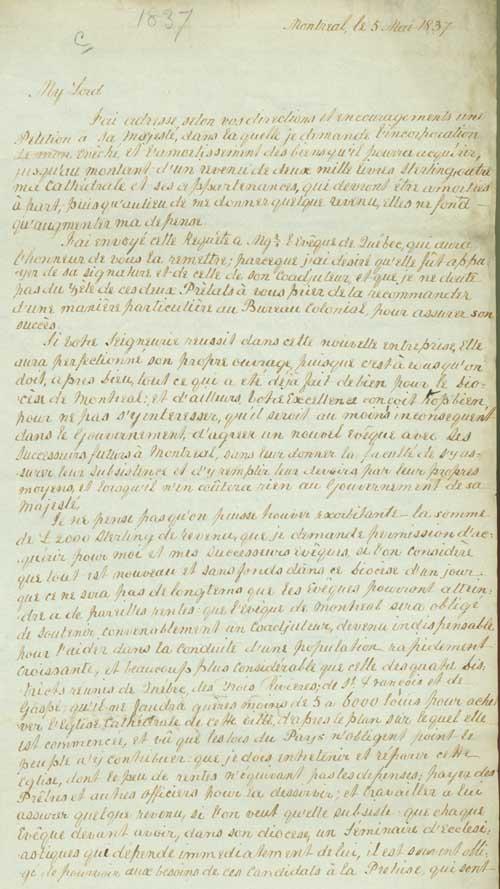 1837
C
Montreal, le 5 Mai 1837
My Lord
J'ai adressé, selon vos directions et encouragements une
Petition a sa Majesté, dans laquelle je demande l'incorporation
de mon Evêché et l'amortissement des biens qu'il pourra acquérir,
jusqu'au montant d'un revenu de deux mille livres Sterling, outre
ma Cathédrale et ses appartenances, qui devront être amorties
à part, puisqu'au lieu de me donner quelque revenu, elles ne font
qu'augmenter ma depense.
J'ai envoyé cette Requête a Mgr. l'Evêque de Québec, qui aura
l'honneur de vous la remettre; parceque j'ai désiré qu'elle fût appu
yée de sa signature et de celle de son Coadjuteur, et que je ne doute
pas du zèle de ces deux Prélats à vous prier de la recommander
d'une manière particulière au Bureau Colonial, pour assurer son
succès.
Si Votre Seigneurie reussit dans cette nouvelle entreprise, Elle
aura perfectionné son propre ouvrage, puisque c'est à vous qu'on
doit, après Dieu, tout ce qui a été déjà fait de bien pour le Dio-
cèse de Montreal; et d'ailleurs Votre Excellence conçoit trop bien,
pour ne pas s'y interesser, qu'il seroit au moins inconsequent
dans le Gouvernement, d'agréer un nouvel Evêque avec des
Successeurs futurs à Montreal, sans leur donner la faculté de s'y as-
surer leur subsistence et d'y remplir leur devoirs par leur propres
moyens, et lorsqu'il n'en coûtera rien au Gouvernement de sa
Majesté.
Je ne pense pas qu'on puisse trouver exorbitante la somme
de £2000 Sterling de revenu, que je demande permission d'ac-
quérir pour moi et mes successeurs évêques, si l'on considere
que tout est nouveau et sans fonds dans ce Diocèse d'un jour:
que ce ne sera pas de longtems que des Evêques pourront attein-
dre a de pareilles rentes: que l'Evêque de Montreal sera obligé
de soutenir, convenablement un Coadjuteur, devenu indispensable
pour l'aider dans la conduite d'une population rapidement
croissante, et beaucoup plus considérable que celle des quatre Dis-
tricts reunis de Québec, des Trois Rivières, de St. François et de
Gaspé: qu'il me faudra gueres moins de 5 a 6000 louis pour ache
ver l'Eglise Cathédrale de cette ville, d'après le plan sur lequel elle
est commencée, et vû que les lois du Pays n'obligent point le
peuple a y contribuer: que je dois entretenir et réparer cette
Eglise, dont le peu de rentes n'équivaut pas les depenses; payer des
Prêtres et autres officiers pour la desservir; et travailler à lui
assurer quelque revenu, si l'on veut qu'elle subsiste: que chaque
Evêque devant avoir, dans son diocèse, un Séminaire d'Ecclesi-
astiques qui depende immediatement de lui, il est souvent obli-
gé de pourvoir aux besoins de ces Candidats à la Prêtrise, qui sont